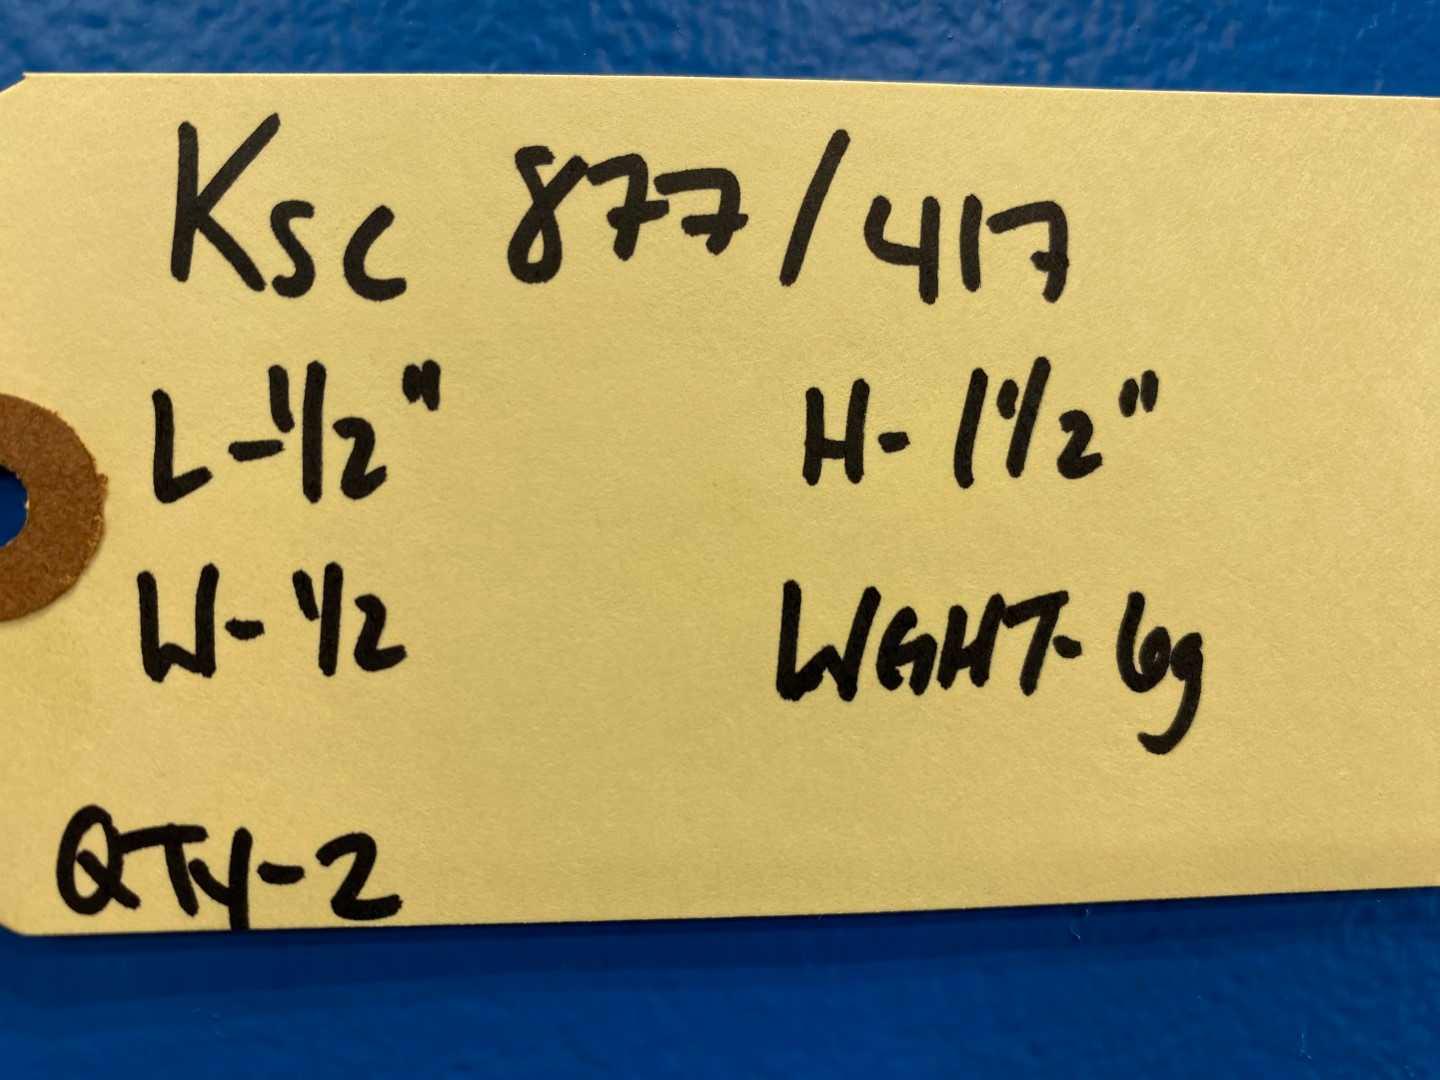 Ksc 877/417
L-1/2" H-1 1/2"
W-1/2 WGHT-6g
QTy-2